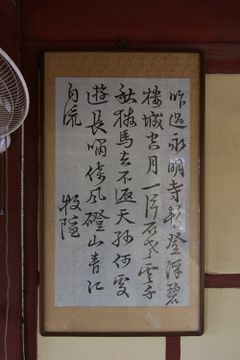 昨過永明寺暫登浮碧
樓城空月一片石老雲千
秋獜馬去不返天孫何處
遊長嘯倚風磴山青江
自流
牧隱